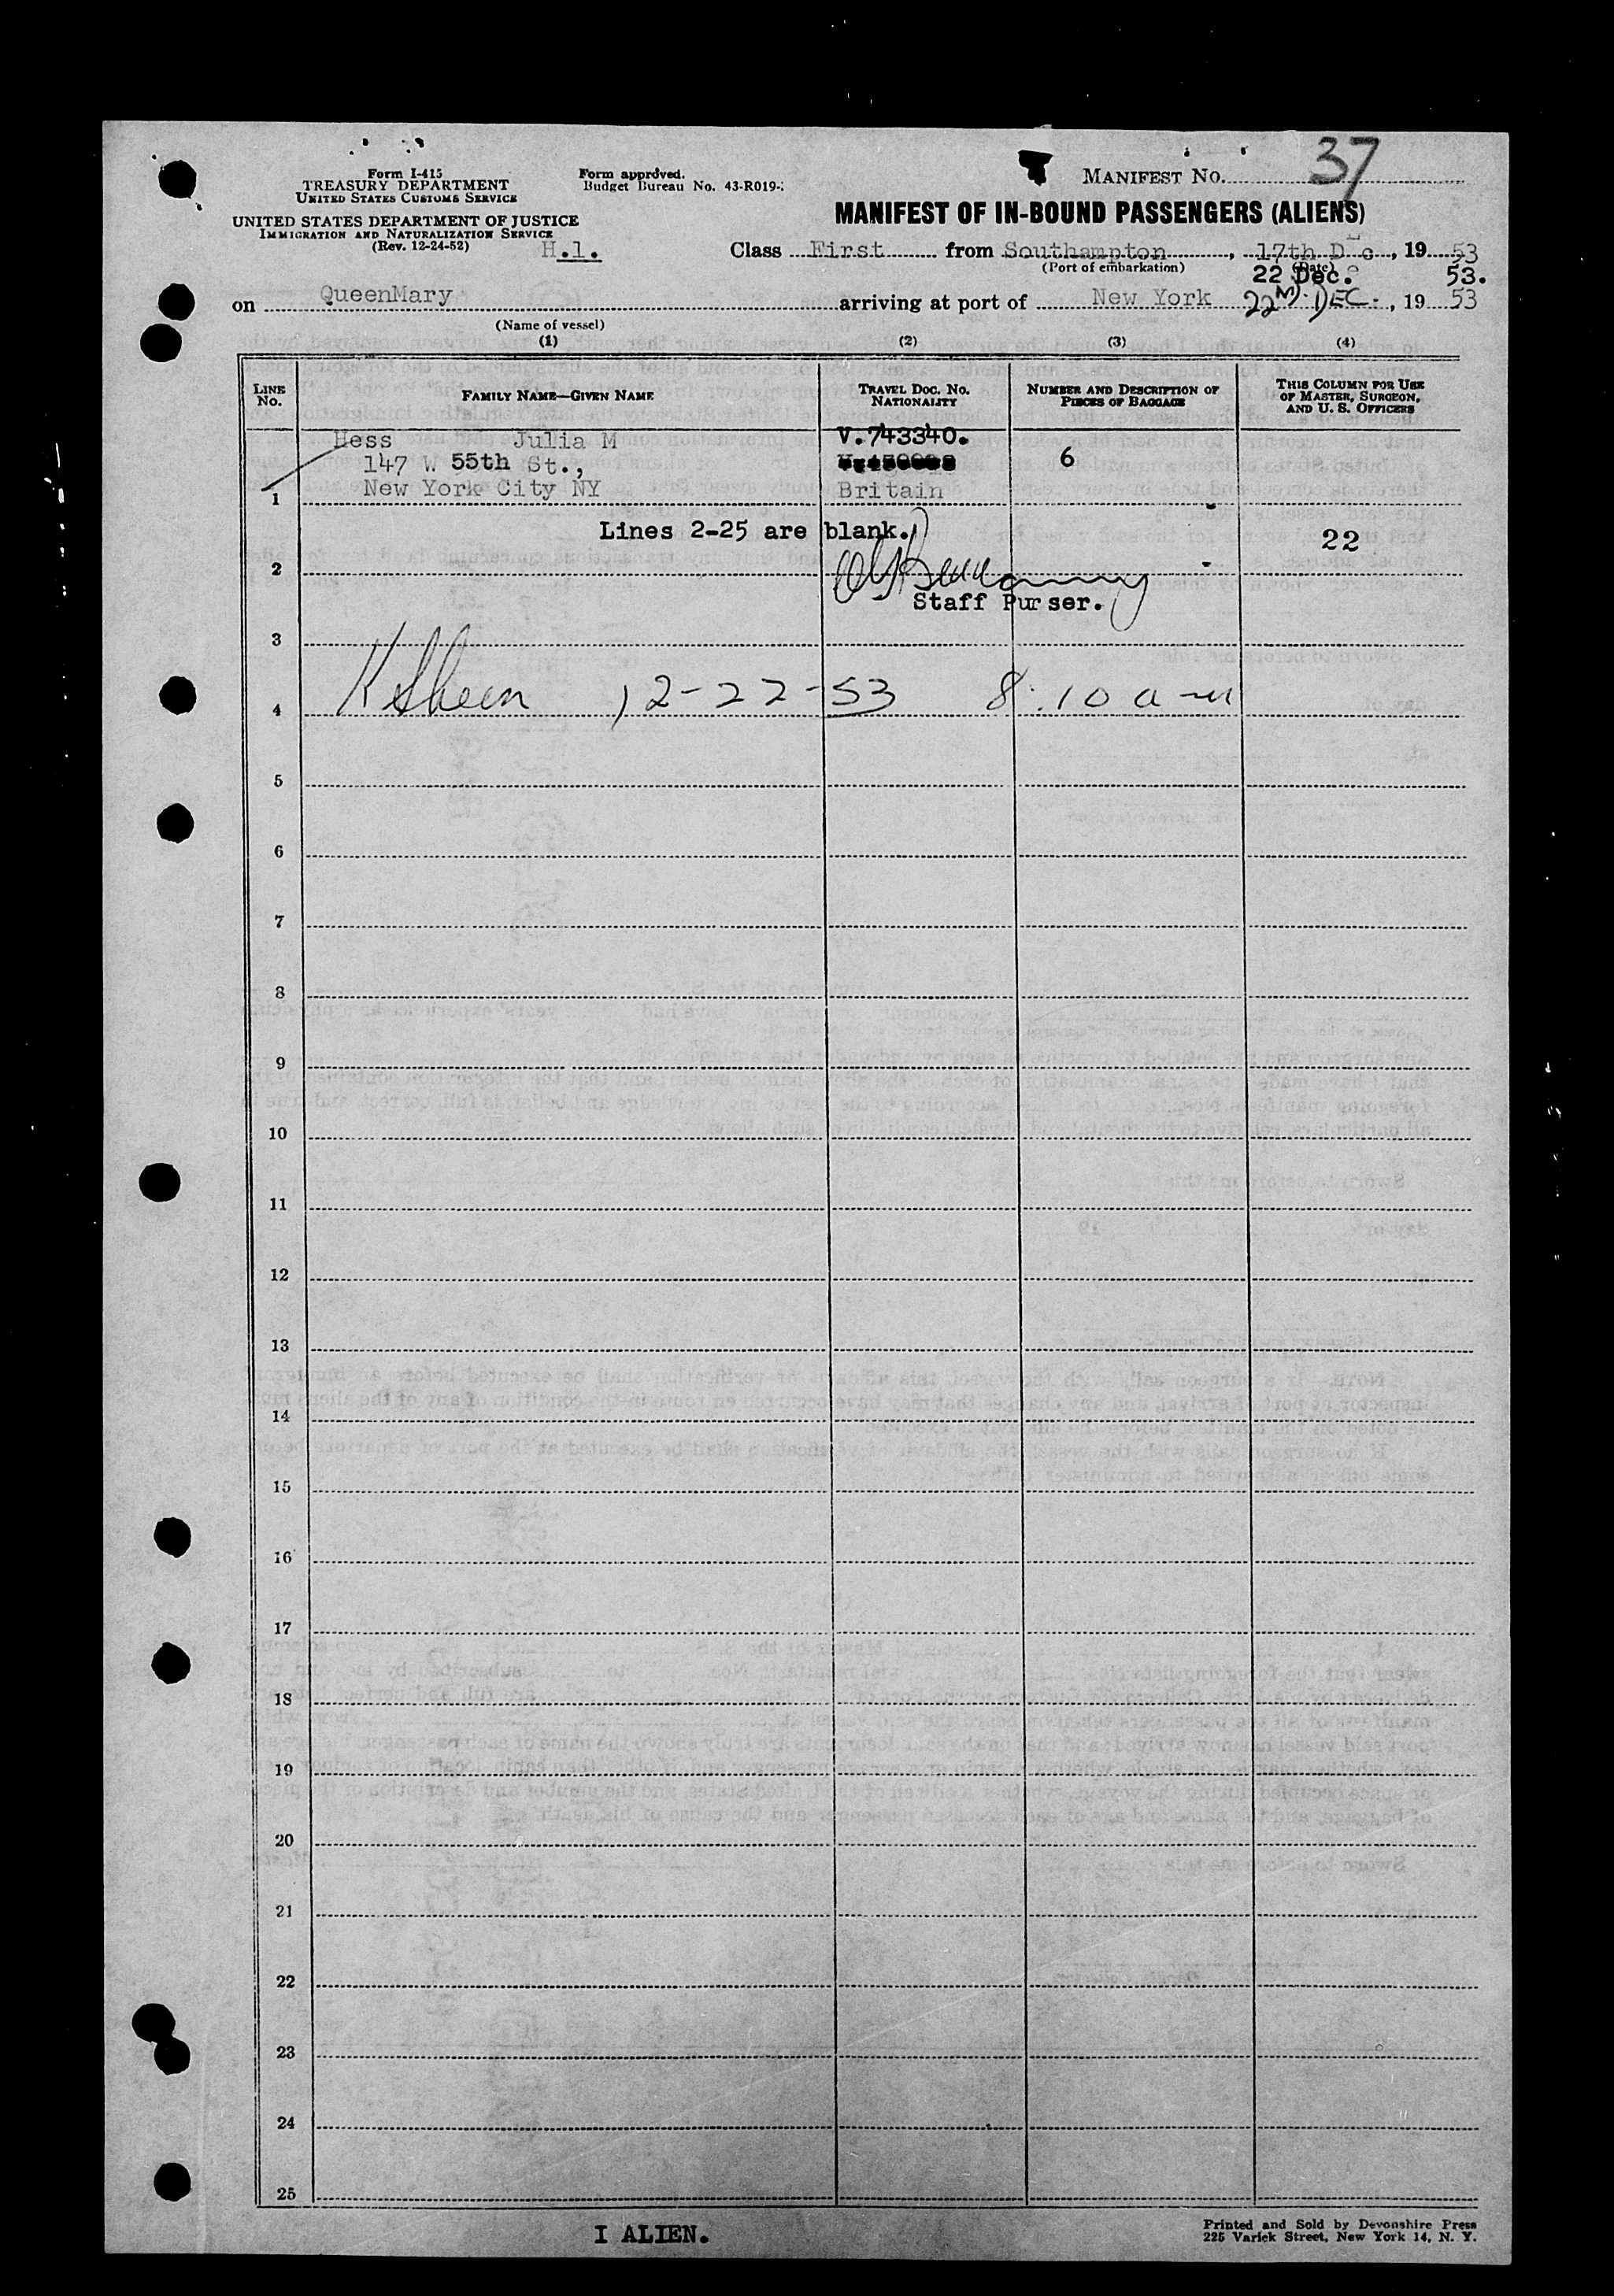 Form I-415
TREASURY DEPARTMENT
UNITED STATES CUSTOMS SERVICE
UNITED STATES DEPARTMENT OF JUSTICE
IMMIGRATION AND NATURALIZATION SERVICE
(Rev. 12-24-52)
H.1.
Form approved.
Budget Bureau No. 43-R019-
MANIFEST NO. 37
MANIFEST OF IN-BOUND PASSENGERS (ALIENS)
Class First from Southampton, 17th Dec, 1953
(Port of embarkation) (Date)
22 Dec. 53.
on QueenMary arriving at port of New York 22 DEC., 1953
(Name of vessel)
(1) (2) (3) (4)
LINE NO. FAMILY NAME—GIVEN NAME TRAVEL DOC. NO. NATIONALITY NUMBER AND DESCRIPTION OF PIECES OF BAGGAGE THIS COLUMN FOR USE OF MASTER, SURGEON, AND U. S. OFFICERS
Hess Julia M V.743340.
147 W 55th St., 6
1 New York City NY Britain
Lines 2-25 are blank. 22
2
Staff Purser.
3
4 12-22-53 8:10 am
5
6
7
8
9
10
11
12
13
14
15
16
17
18
19
20
21
22
23
24
25
I ALIEN.
Printed and Sold by Devonshire Press
225 Varick Street, New York 14, N. Y.